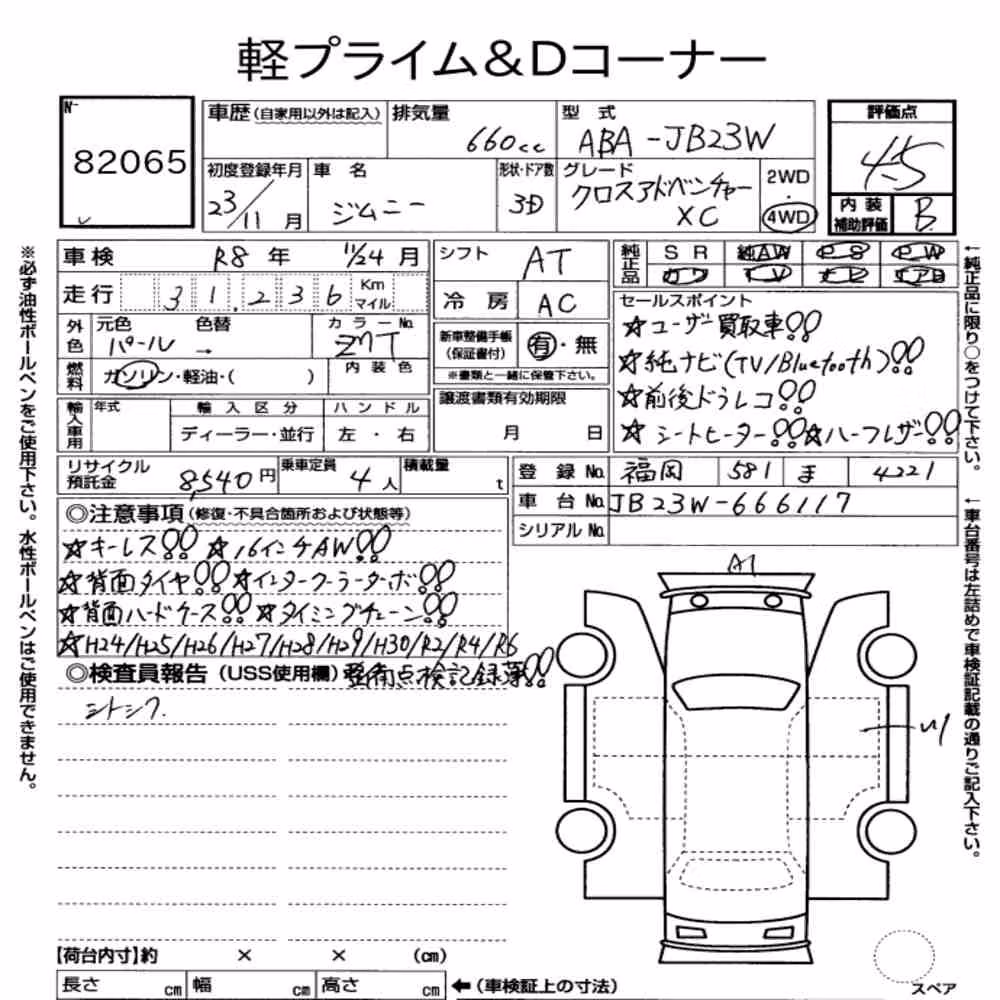 軽プライム&Dコーナー
№
82065
車歴(自家用以外は記入)
排気量
660cc
型式
ABA-JB23W
評価点
4.5
初度登録年月
23/11月
車名
ジムニー
形状・ドア数
3D
グレード
クロスアドベンチャー
XC
2WD
・
4WD
内装
補助評価
B
車検 R8年 11/24月
シフト AT
純正品
SR 純AW PS PW
カワ TV ナビ エアB
走行 31,236 Km マイル
冷房 AC
セールスポイント
☆ユーザー買取車!!
☆純ナビ(TV/Bluetooth)!!
☆前後ドラレコ!!
☆シートヒーター!!☆ハーフレザー!!
外色
元色 色替
パール →
カラーNo.
Z7T
新車整備手帳
(保証書付)
有・無
※書類と一緒に保管下さい。
燃料
ガソリン・軽油・( )
内装色
譲渡書類有効期限
月 日
輸入車用
年式
輸入区分
ディーラー・並行
ハンドル
左・右
リサイクル
預託金
8,540円
乗車定員
4人
積載量
t
登録No. 福岡 581 ま 4221
車台No. JB23W-666117
シリアルNo.
◎注意事項(修復・不具合箇所および状態等)
☆キーレス!! ☆16インチAW!!
☆背面タイヤ!! ☆インタークーラーターボ!!
☆背面ハードケース!! ☆タイミングチェーン!!
☆H24/H25/H26/H27/H28/H29/H30/R2/R4/R6
◎検査員報告(USS使用欄)
整備点検記録簿!!
A1
【荷台内寸】約 × × (cm)
長さ cm 幅 cm 高さ cm
←(車検証上の寸法)
スペア
※必ず油性ボールペンをご使用下さい。水性ボールペンはご使用できません。
←純正品に限り○をつけて下さい。
←車台番号は左詰めで車検証記載の通りご記入下さい。